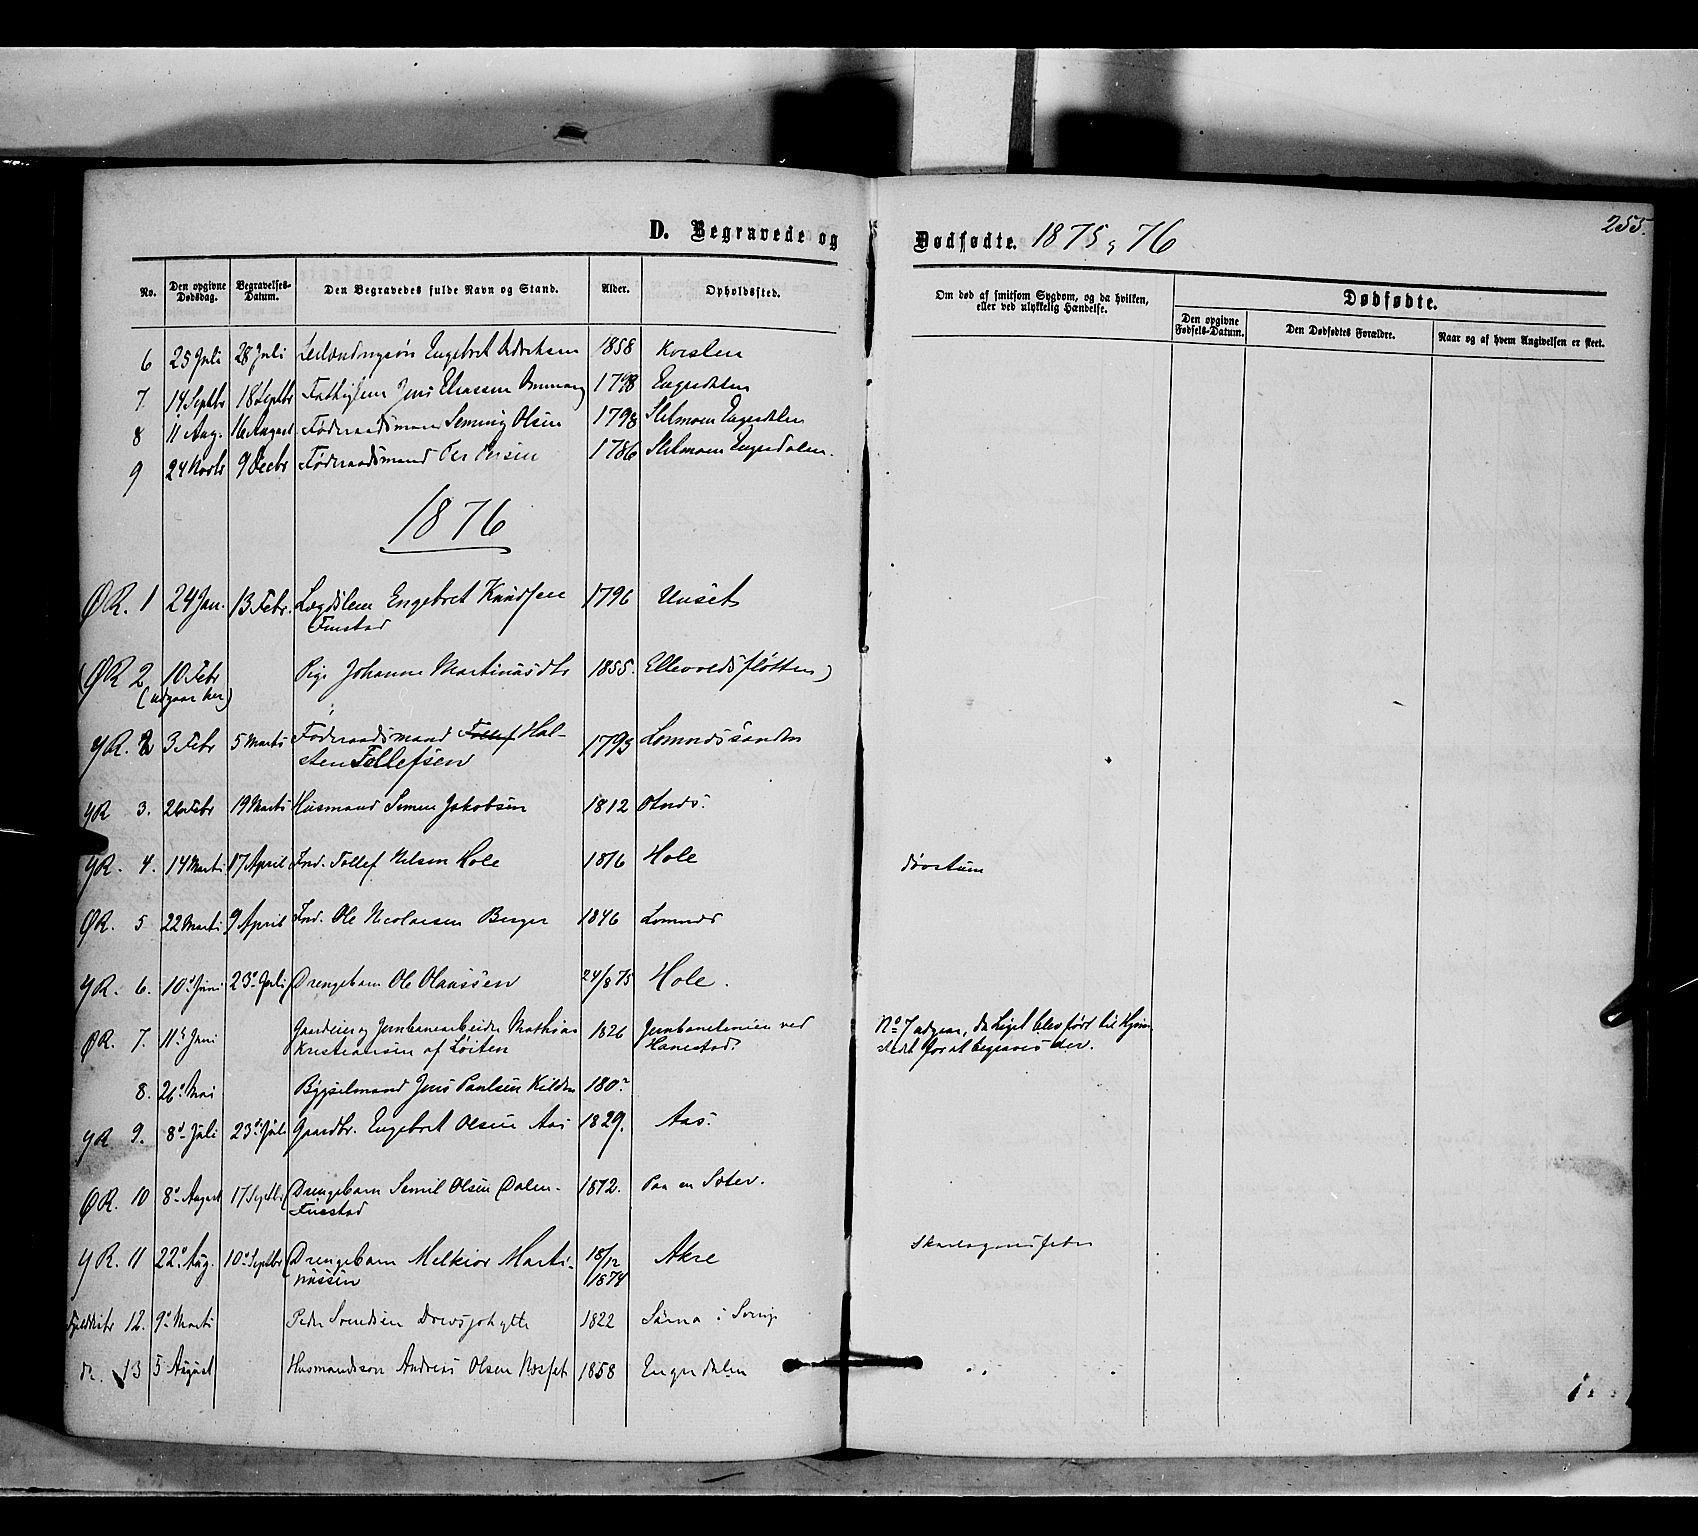 255.
D. Begravede og Dødfødte. 1875 og 76
No. Den opgivne Dødsdag. Begravelses-Datum. Den Begravedes fulde Navn og Stand. Alder. Opholdssted. Om død af smitsom Sygdom, og da hvilken, eller ved ulykkelig Hændelse. Dødfødte.
Den opgivne Fødsels-Datum. Den Dødfødtes Forældre. Naar og af hvem Angivelsen er skeet.
6 25 Juli 28 Juli Engebret 1858
7. 14 Septbr 18 Septbr Fattiglem Jens Eliassen 1798 Engerdalen
8 11 Aug. 16 August Føderaadsmand Semming Olsen 1798 Engerdalen
9 24 Novbr 9 Decbr Føderaadsmand Per Persen 1786 Engerdalen.
1876
ØR. 1 24 Jan. 13 Febr. Lægdslem Engebret Knudsen 1796 Unset
Finstad
(ØR 2 10 Febr Pige Johanne Martinusdtr 1855. Ellevoldsfløtten)
(udgaar her)
YR. 2 3 Febr 5 Marts Føderaadsmand Tollef Hal- 1793 Lomnessanden
sten Tollefsen
YR 3. 26 Febr 19 Marts Husmand Simen Jakobsen 1812 Otnes.
YR. 4. 14 Marts 17 April Ind. Tollef Nilsen Hole 1816 Hole døvstum
ØR. 5 22 Marts 9 April Ind. Ole Nicolaisen Berger 1846 Lomnes
YR. 6. 10de Juni 23de Juli Drengebarn Ole Olaussen 24/8 75 Hole.
ØR. 7. 11te Juni Gaardeier og Jernbanearbeider Mathias 1826 Jernbanelinien ved No 7 udgaar, da Liget blev ført til Hjem-
Kristiansen af Løiten Hanestad. stedet for at begraves der.
8. 26de Mai Bygselmand Jens Paulsen Kilden 180?
YR 9. 8de Juli 23de Juli Gaardbr. Engebret Olsen Aas 1829. Aas.
ØR. 10 8de August 17 Septbr Drengebarn Semil Olsen Dalen- 1872. Paa en Sæter.
Finstad
YR. 11 22de Aug. 10de Septbr Drengebarn Melkior Marti- 18/12 Akre Skarlagensfeber
nussen 1874
12. 9de Marts Peder Svendsen Drevsjøhytte 1822 Särna i Sverig
do. 13 5 August Husmandssøn Andreas Olsen 1858 Engerdalen